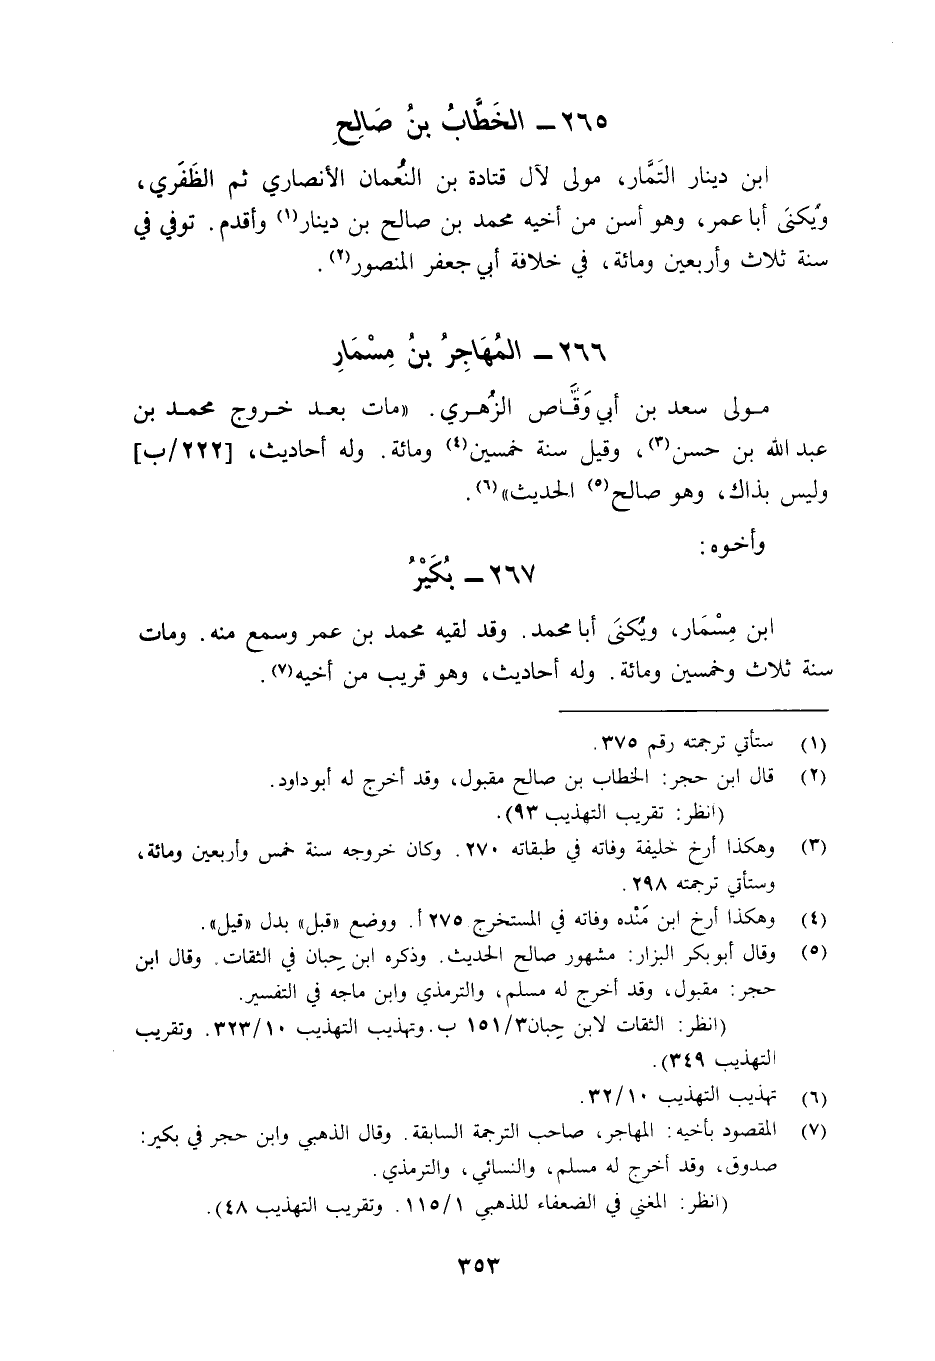 ٢٦٥ – الخَطَّابُ بنُ صَالِحِ
ابن دينار التَمَّار، مولى لآل قتادة بن النُعمان الأنصاري ثم الظَفَري،
ويُكنَى أبا عمر، وهو أسن من أخيه محمد بن صالح بن دينار(١) وأقدم. توفي في
سنة ثلاث وأربعين ومائة، في خلافة أبي جعفر المنصور(٢).
٢٦٦ – المُهَاجِرُ بنُ مِسْمَارِ
مولى سعد بن أبي وَقَّاص الزُهري. «مات بعد خروج محمد بن
عبد الله بن حسن(٣)، وقيل سنة خمسين(٤) ومائة. وله أحاديث، [٢٢٢/ب]
وليس بذاك، وهو صالح(٥) الحديث»(٦).
وأخوه:
٢٦٧ – بُكَيْرُ
ابن مِسْمَار، ويُكنَى أبا محمد. وقد لقيه محمد بن عمر وسمع منه. ومات
سنة ثلاث وخمسين ومائة. وله أحاديث، وهو قريب من أخيه(٧).
(١) ستأتي ترجمته رقم ٣٧٥.
(٢) قال ابن حجر: الخطاب بن صالح مقبول، وقد أخرج له أبو داود.
(انظر: تقريب التهذيب ٩٣).
(٣) وهكذا أرخ خليفة وفاته في طبقاته ٢٧٠. وكان خروجه سنة خمس وأربعين ومائة،
وستأتي ترجمته ٢٩٨.
(٤) وهكذا أرخ ابن مَنْده وفاته في المستخرج ٢٧٥ أ. ووضع «قبل» بدل «قيل».
(٥) وقال أبو بكر البزار: مشهور صالح الحديث. وذكره ابن حِبان في الثقات. وقال ابن
حجر: مقبول، وقد أخرج له مسلم، والترمذي وابن ماجه في التفسير.
(انظر: الثقات لابن حِبان ٣/١٥١ ب. وتهذيب التهذيب ١٠/٣٢٣. وتقريب
التهذيب ٣٤٩).
(٦) تهذيب التهذيب ١٠/٣٢.
(٧) المقصود بأخيه: المهاجر، صاحب الترجمة السابقة. وقال الذهبي وابن حجر في بكير:
صدوق، وقد أخرج له مسلم، والنسائي، والترمذي.
(انظر: المغني في الضعفاء للذهبي ١/١١٥. وتقريب التهذيب ٤٨).
٣٥٣